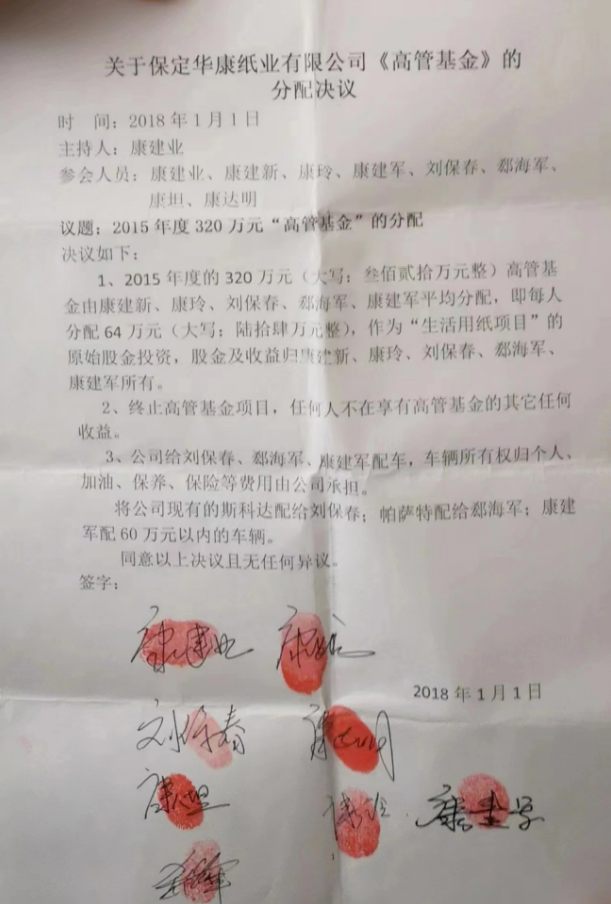 关于保定华康纸业有限公司《高管基金》的
分配决议
时 间：2018年1月1日
主持人：康建业
参会人员：康建业、康建新、康玲、康建军、刘保春、郄海军、
康坦、康达明
议题：2015年度320万元“高管基金”的分配
决议如下：
1、2015年度的320万元（大写：叁佰贰拾万元整）高管基
金由康建新、康玲、刘保春、郄海军、康建军平均分配，即每人
分配64万元（大写：陆拾肆万元整），作为“生活用纸项目”的
原始股金投资，股金及收益归康建新、康玲、刘保春、郄海军、
康建军所有。
2、终止高管基金项目，任何人不在享有高管基金的其它任何
收益。
3、公司给刘保春、郄海军、康建军配车，车辆所有权归个人、
加油、保养、保险等费用由公司承担。
将公司现有的斯科达配给刘保春；帕萨特配给郄海军；康建
军配60万元以内的车辆。
同意以上决议且无任何异议。
签字：
康建业
2018年1月1日
刘保春
康坦 康玲